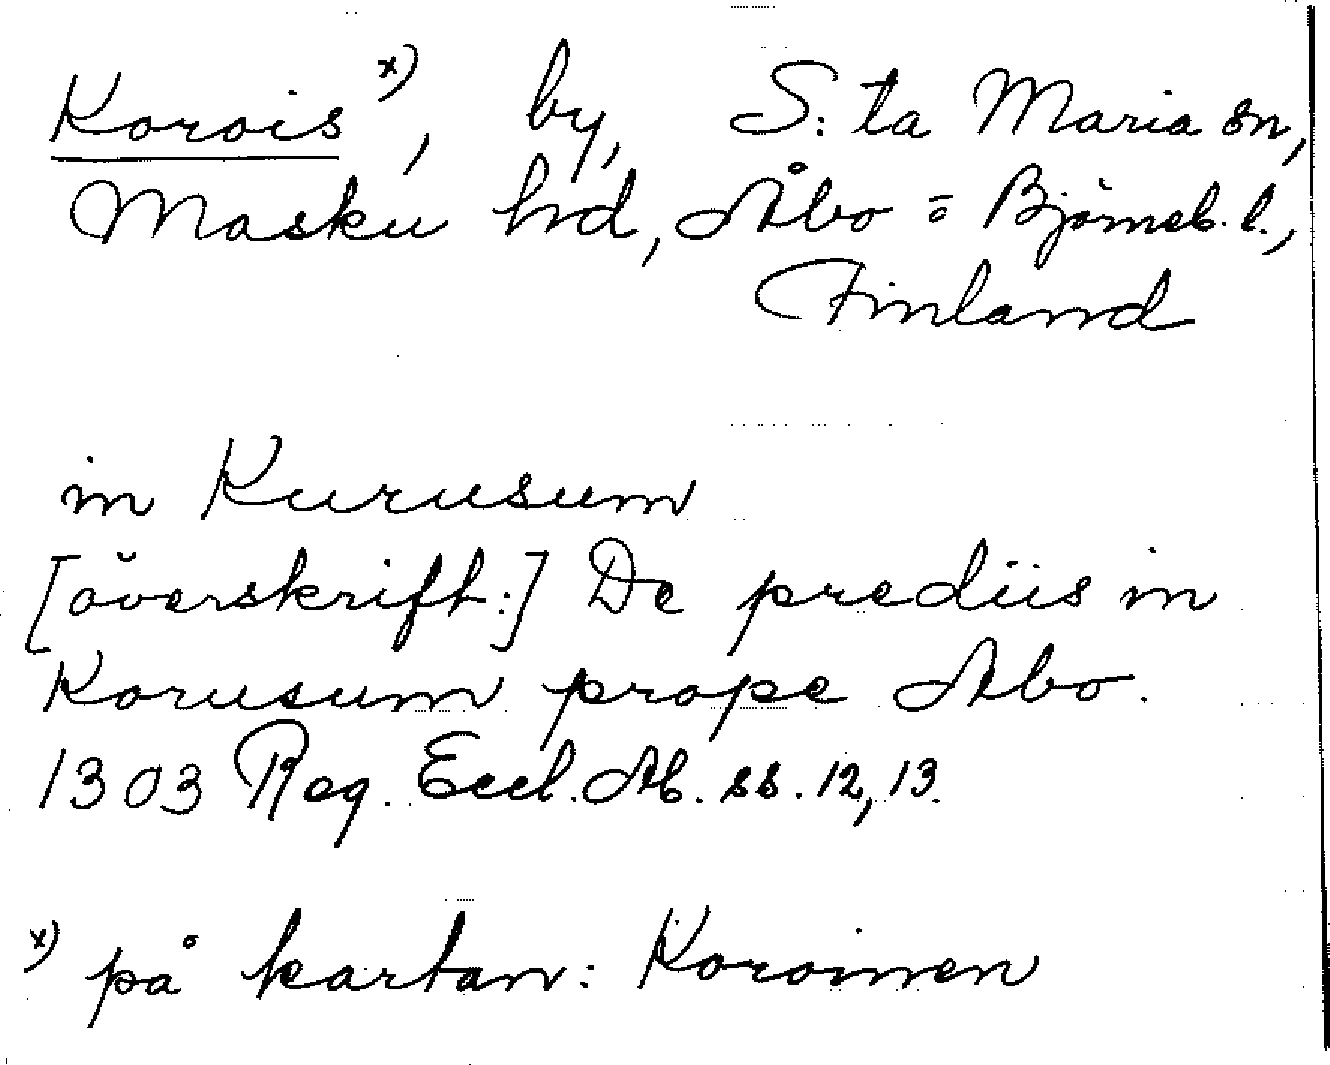 Korois x), by, S:ta Maria sn,
Masku hd, Åbo = Björneb. l.,
Finland
in Kurusum
[överskrift:] De prediis in
Korusum prope Abo.
1303 Reg. Eccl. Ab. ss. 12, 13.
x) på kartan: Koroinen